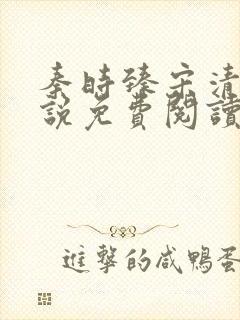 秦時臻宋清
說免費閱讀
進擊的咸鴨蛋